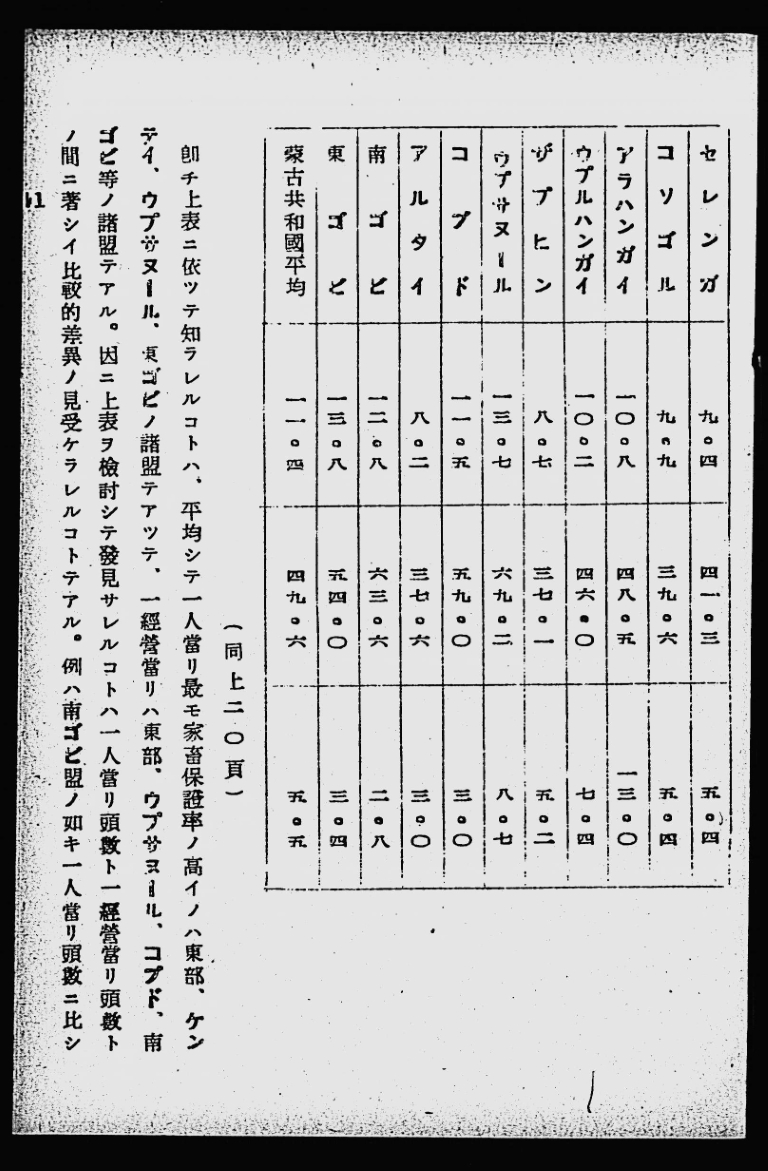 セレンガ 九。四 四一。三 五。四
コソゴル 九。九 三九。六 五。四
アラハンガイ 一〇。八 四八。五 一三。〇
ウブルハンガイ 一〇。二 四六。〇 七。四
ザブヒン 八。七 三七。一 五。二
ウブサヌール 一三。七 六九。二 八。七
コブド 一一。五 五九。〇 三。〇
アルタイ 八。二 三七。六 三。〇
南ゴビ 一二。八 六三。六 二。八
東ゴビ 一三。八 五四。〇 三。四
蒙古共和國平均 一一。四 四九。六 五。五
(同上二〇頁)
卽チ上表ニ依ツテ知ラレルコトハ、平均シテ一人當リ最モ家畜保證率ノ高イノハ東部、ケン
テイ、ウブサヌール、東ゴビノ諸盟テアツテ、一經營當リハ東部、ウブサヌール、コブド、南
ゴビ等ノ諸盟テアル。因ニ上表ヲ檢討シテ發見サレルコトハ一人當リ頭數ト一經營當リ頭數ト
ノ間ニ著シイ比較的差異ノ見受ケラレルコトテアル。例ハ南ゴビ盟ノ如キ一人當リ頭數ニ比シ
41